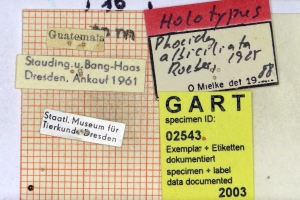 Guatemala
Stauding. u. Bang-Haas
Dresden. Ankauf 1961
Staatl. Museum für
Tierkunde Dresden
Holotypus
albiciliata
1925
O Mielke det 19 88
GART
specimen ID:
02543
Exemplar + Etiketten
dokumentiert
specimen + label
data documented
2003